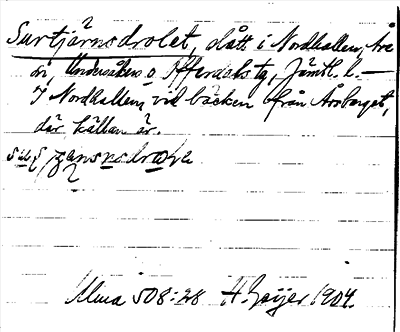 Surtjärnsdrolet, slått i Nordhallen, Åre
sn, Undersåkers o. Offerdals tg, Jämtl. l. —
I Nordhallen, vid bäcken från Årsberget,
där källan är.
Ulma 508:28 H. Geijer 1904.